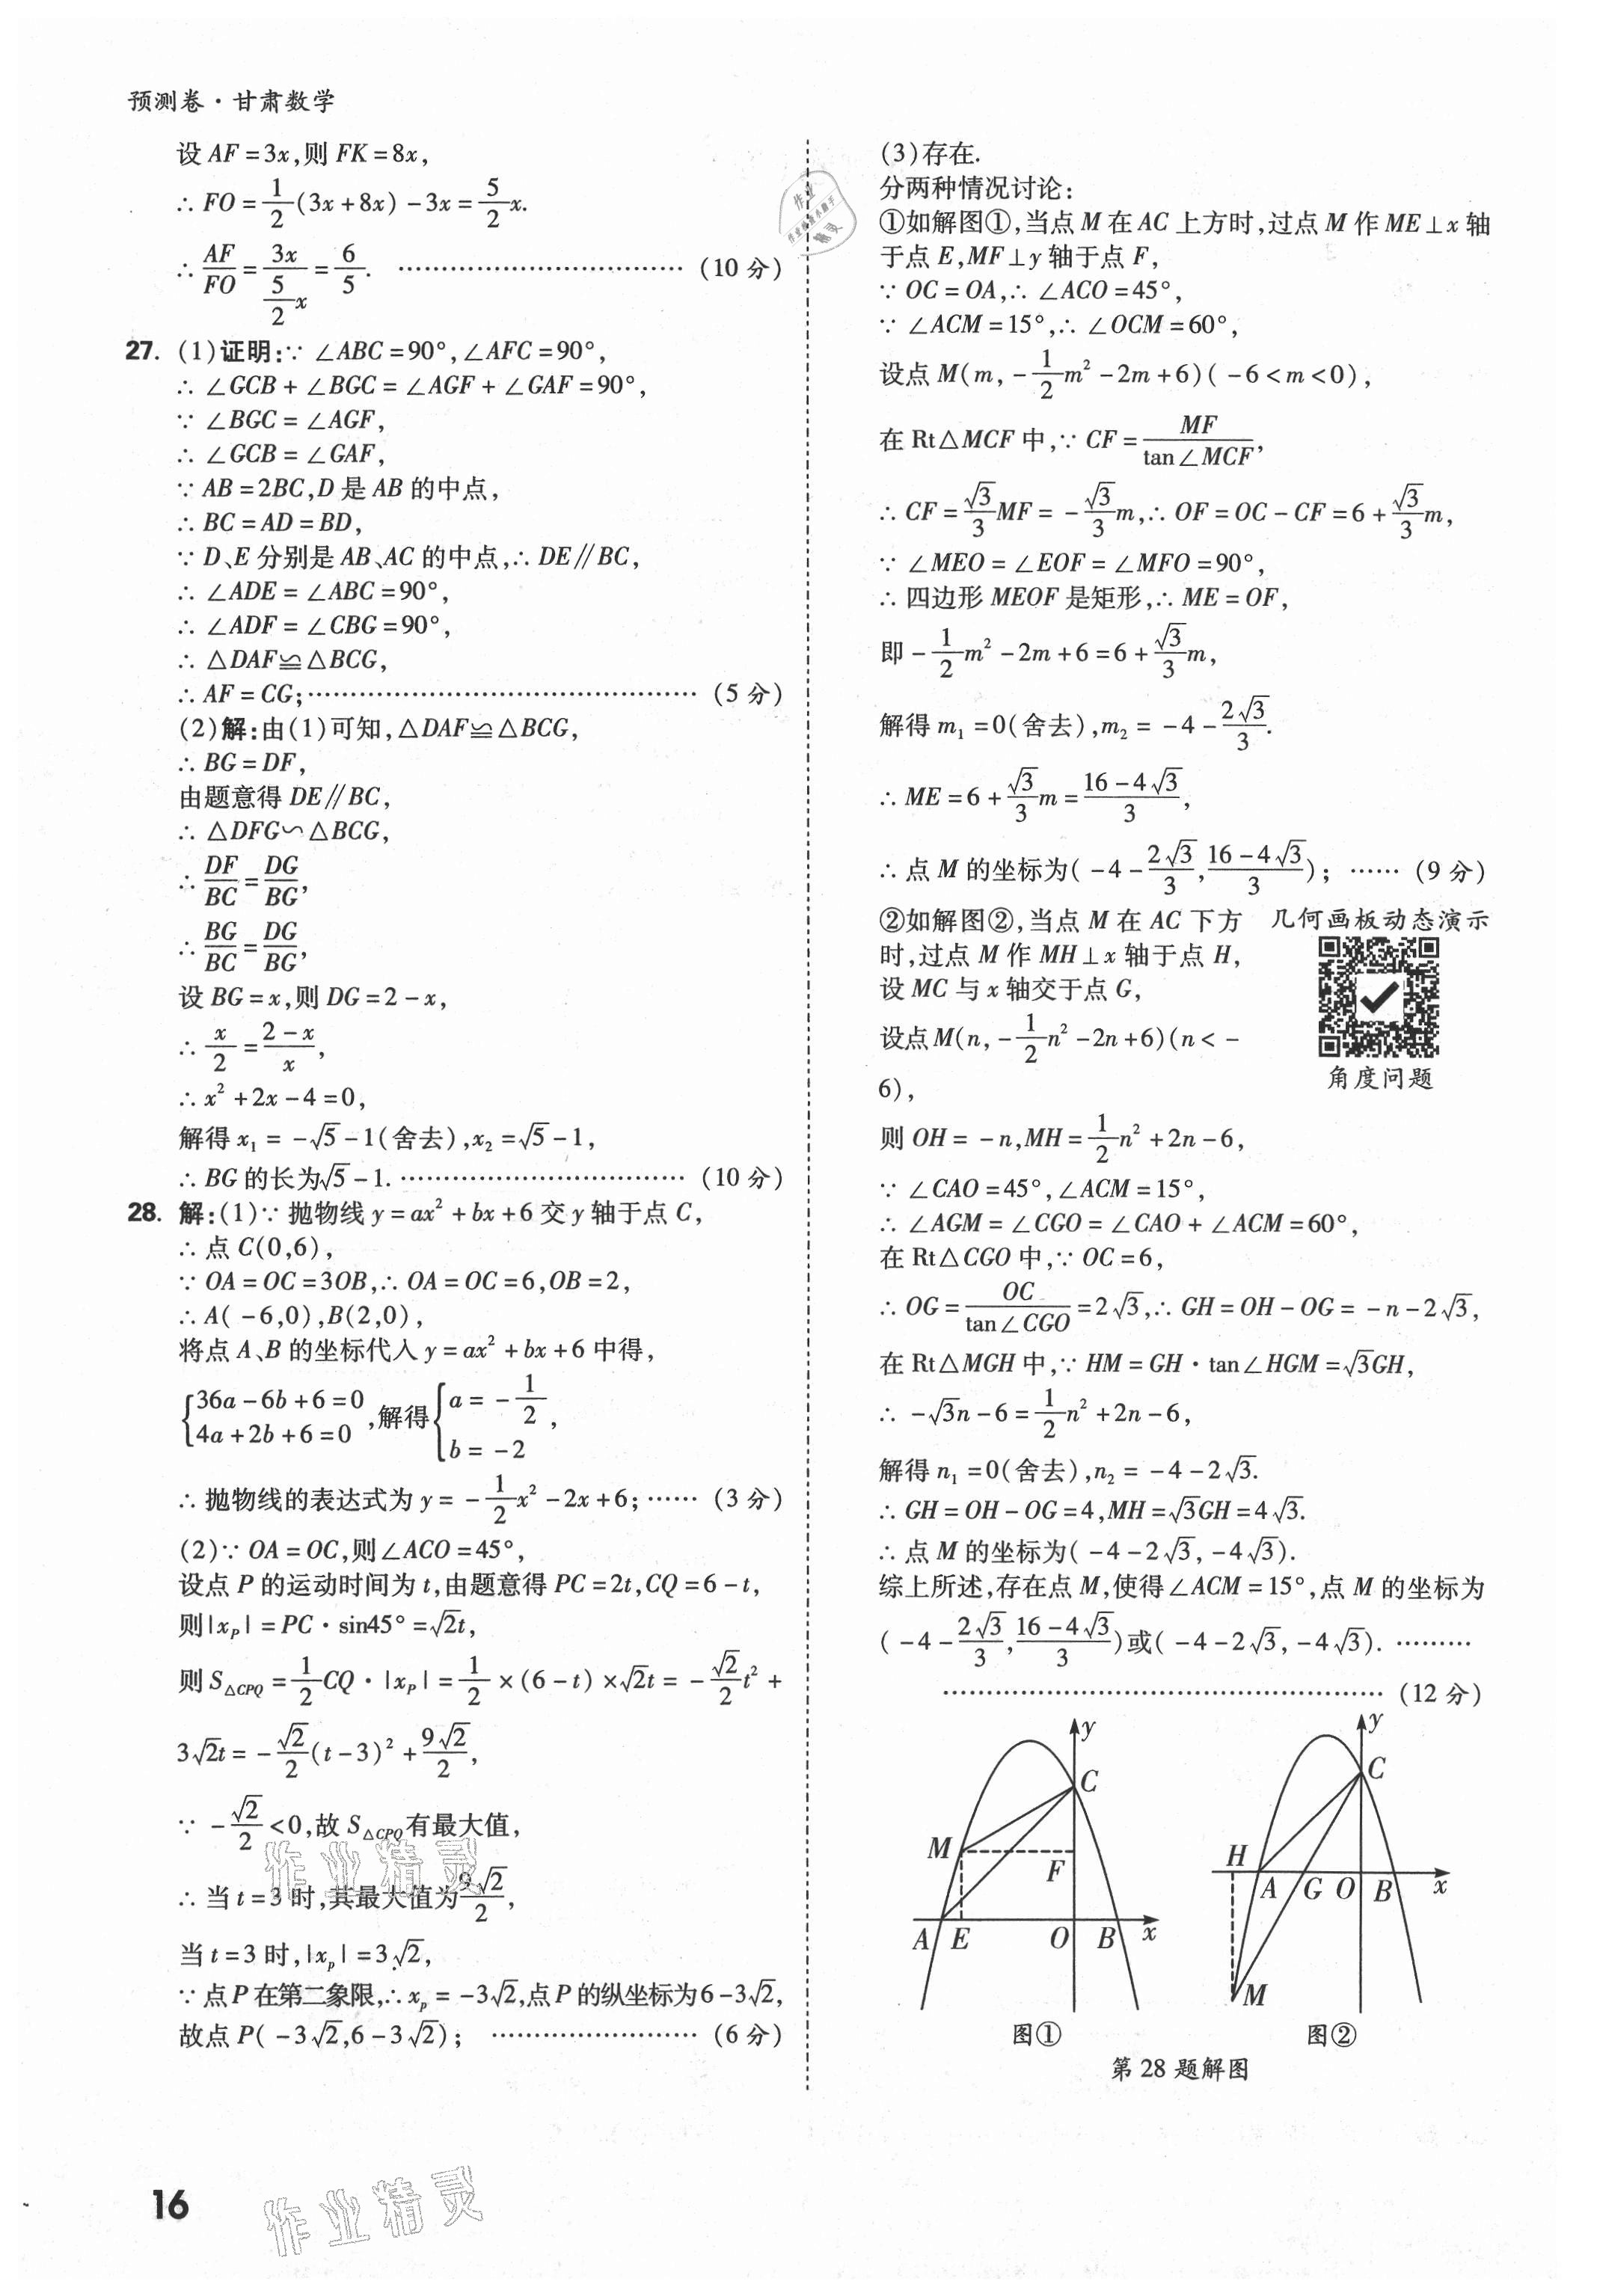 预测卷·甘肃数学
设 AF=3x,则 FK=8x,
∴ FO=1/2(3x+8x)-3x=5/2x.
∴ AF/FO=3x/(5/2x)=6/5. ……………………………(10 分)
27. (1)证明:∵ ∠ABC=90°,∠AFC=90°,
∴ ∠GCB+∠BGC=∠AGF+∠GAF=90°,
∵ ∠BGC=∠AGF,
∴ ∠GCB=∠GAF,
∵ AB=2BC,D 是 AB 的中点,
∴ BC=AD=BD,
∵ D、E 分别是 AB、AC 的中点,∴ DE∥BC,
∴ ∠ADE=∠ABC=90°,
∴ ∠ADF=∠CBG=90°,
∴ △DAF≌△BCG,
∴ AF=CG;………………………………………(5 分)
(2)解:由(1)可知,△DAF≌△BCG,
∴ BG=DF,
由题意得 DE∥BC,
∴ △DFG∽△BCG,
∴ DF/BC=DG/BG,
∴ BG/BC=DG/BG,
设 BG=x,则 DG=2-x,
∴ x/2=(2-x)/x,
∴ x²+2x-4=0,
解得 x₁=-√5-1(舍去),x₂=√5-1,
∴ BG 的长为√5-1. ……………………………(10 分)
28. 解:(1)∵ 抛物线 y=ax²+bx+6 交 y 轴于点 C,
∴ 点 C(0,6),
∵ OA=OC=3OB,∴ OA=OC=6,OB=2,
∴ A(-6,0),B(2,0),
将点 A、B 的坐标代入 y=ax²+bx+6 中得,
{36a-6b+6=0 4a+2b+6=0,解得{a=-1/2 b=-2,
∴ 抛物线的表达式为 y=-1/2x²-2x+6;……(3 分)
(2)∵ OA=OC,则∠ACO=45°,
设点 P 的运动时间为 t,由题意得 PC=2t,CQ=6-t,
则|x_P|=PC·sin45°=√2t,
则 S△CPQ=1/2CQ·|x_P|=1/2×(6-t)×√2t=-√2/2t²+
3√2t=-√2/2(t-3)²+9√2/2,
∵ -√2/2<0,故 S△CPQ有最大值,
∴ 当 t=3 时,其最大值为9√2/2,
当 t=3 时,|x_p|=3√2,
∵ 点 P 在第二象限,∴ x_p=-3√2,点 P 的纵坐标为6-3√2,
故点 P(-3√2,6-3√2); ……………………(6 分)
(3)存在.
分两种情况讨论:
①如解图①,当点 M 在 AC 上方时,过点 M 作 ME⊥x 轴
于点 E,MF⊥y 轴于点 F,
∵ OC=OA,∴ ∠ACO=45°,
∵ ∠ACM=15°,∴ ∠OCM=60°,
设点 M(m,-1/2m²-2m+6)(-6<m<0),
在 Rt△MCF 中,∵ CF=MF/tan∠MCF,
∴ CF=√3/3MF=-√3/3m,∴ OF=OC-CF=6+√3/3m,
∵ ∠MEO=∠EOF=∠MFO=90°,
∴ 四边形 MEOF 是矩形,∴ ME=OF,
即-1/2m²-2m+6=6+√3/3m,
解得 m₁=0(舍去),m₂=-4-2√3/3.
∴ ME=6+√3/3m=(16-4√3)/3,
∴ 点 M 的坐标为(-4-2√3/3,(16-4√3)/3); ……(9 分)
②如解图②,当点 M 在 AC 下方
时,过点 M 作 MH⊥x 轴于点 H,
设 MC 与 x 轴交于点 G,
设点 M(n,-1/2n²-2n+6)(n<-
6),
几何画板动态演示
角度问题
则 OH=-n,MH=1/2n²+2n-6,
∵ ∠CAO=45°,∠ACM=15°,
∴ ∠AGM=∠CGO=∠CAO+∠ACM=60°,
在 Rt△CGO 中,∵ OC=6,
∴ OG=OC/tan∠CGO=2√3,∴ GH=OH-OG=-n-2√3,
在 Rt△MGH 中,∵ HM=GH·tan∠HGM=√3GH,
∴ -√3n-6=1/2n²+2n-6,
解得 n₁=0(舍去),n₂=-4-2√3.
∴ GH=OH-OG=4,MH=√3GH=4√3.
∴ 点 M 的坐标为(-4-2√3,-4√3).
综上所述,存在点 M,使得∠ACM=15°,点 M 的坐标为
(-4-2√3/3,(16-4√3)/3)或(-4-2√3,-4√3). ………
……………………………………………(12 分)
y
C
M
F
A E O B x
图①
y
C
H
A G O B x
M
图②
第 28 题解图
16
作业精灵
作业精灵